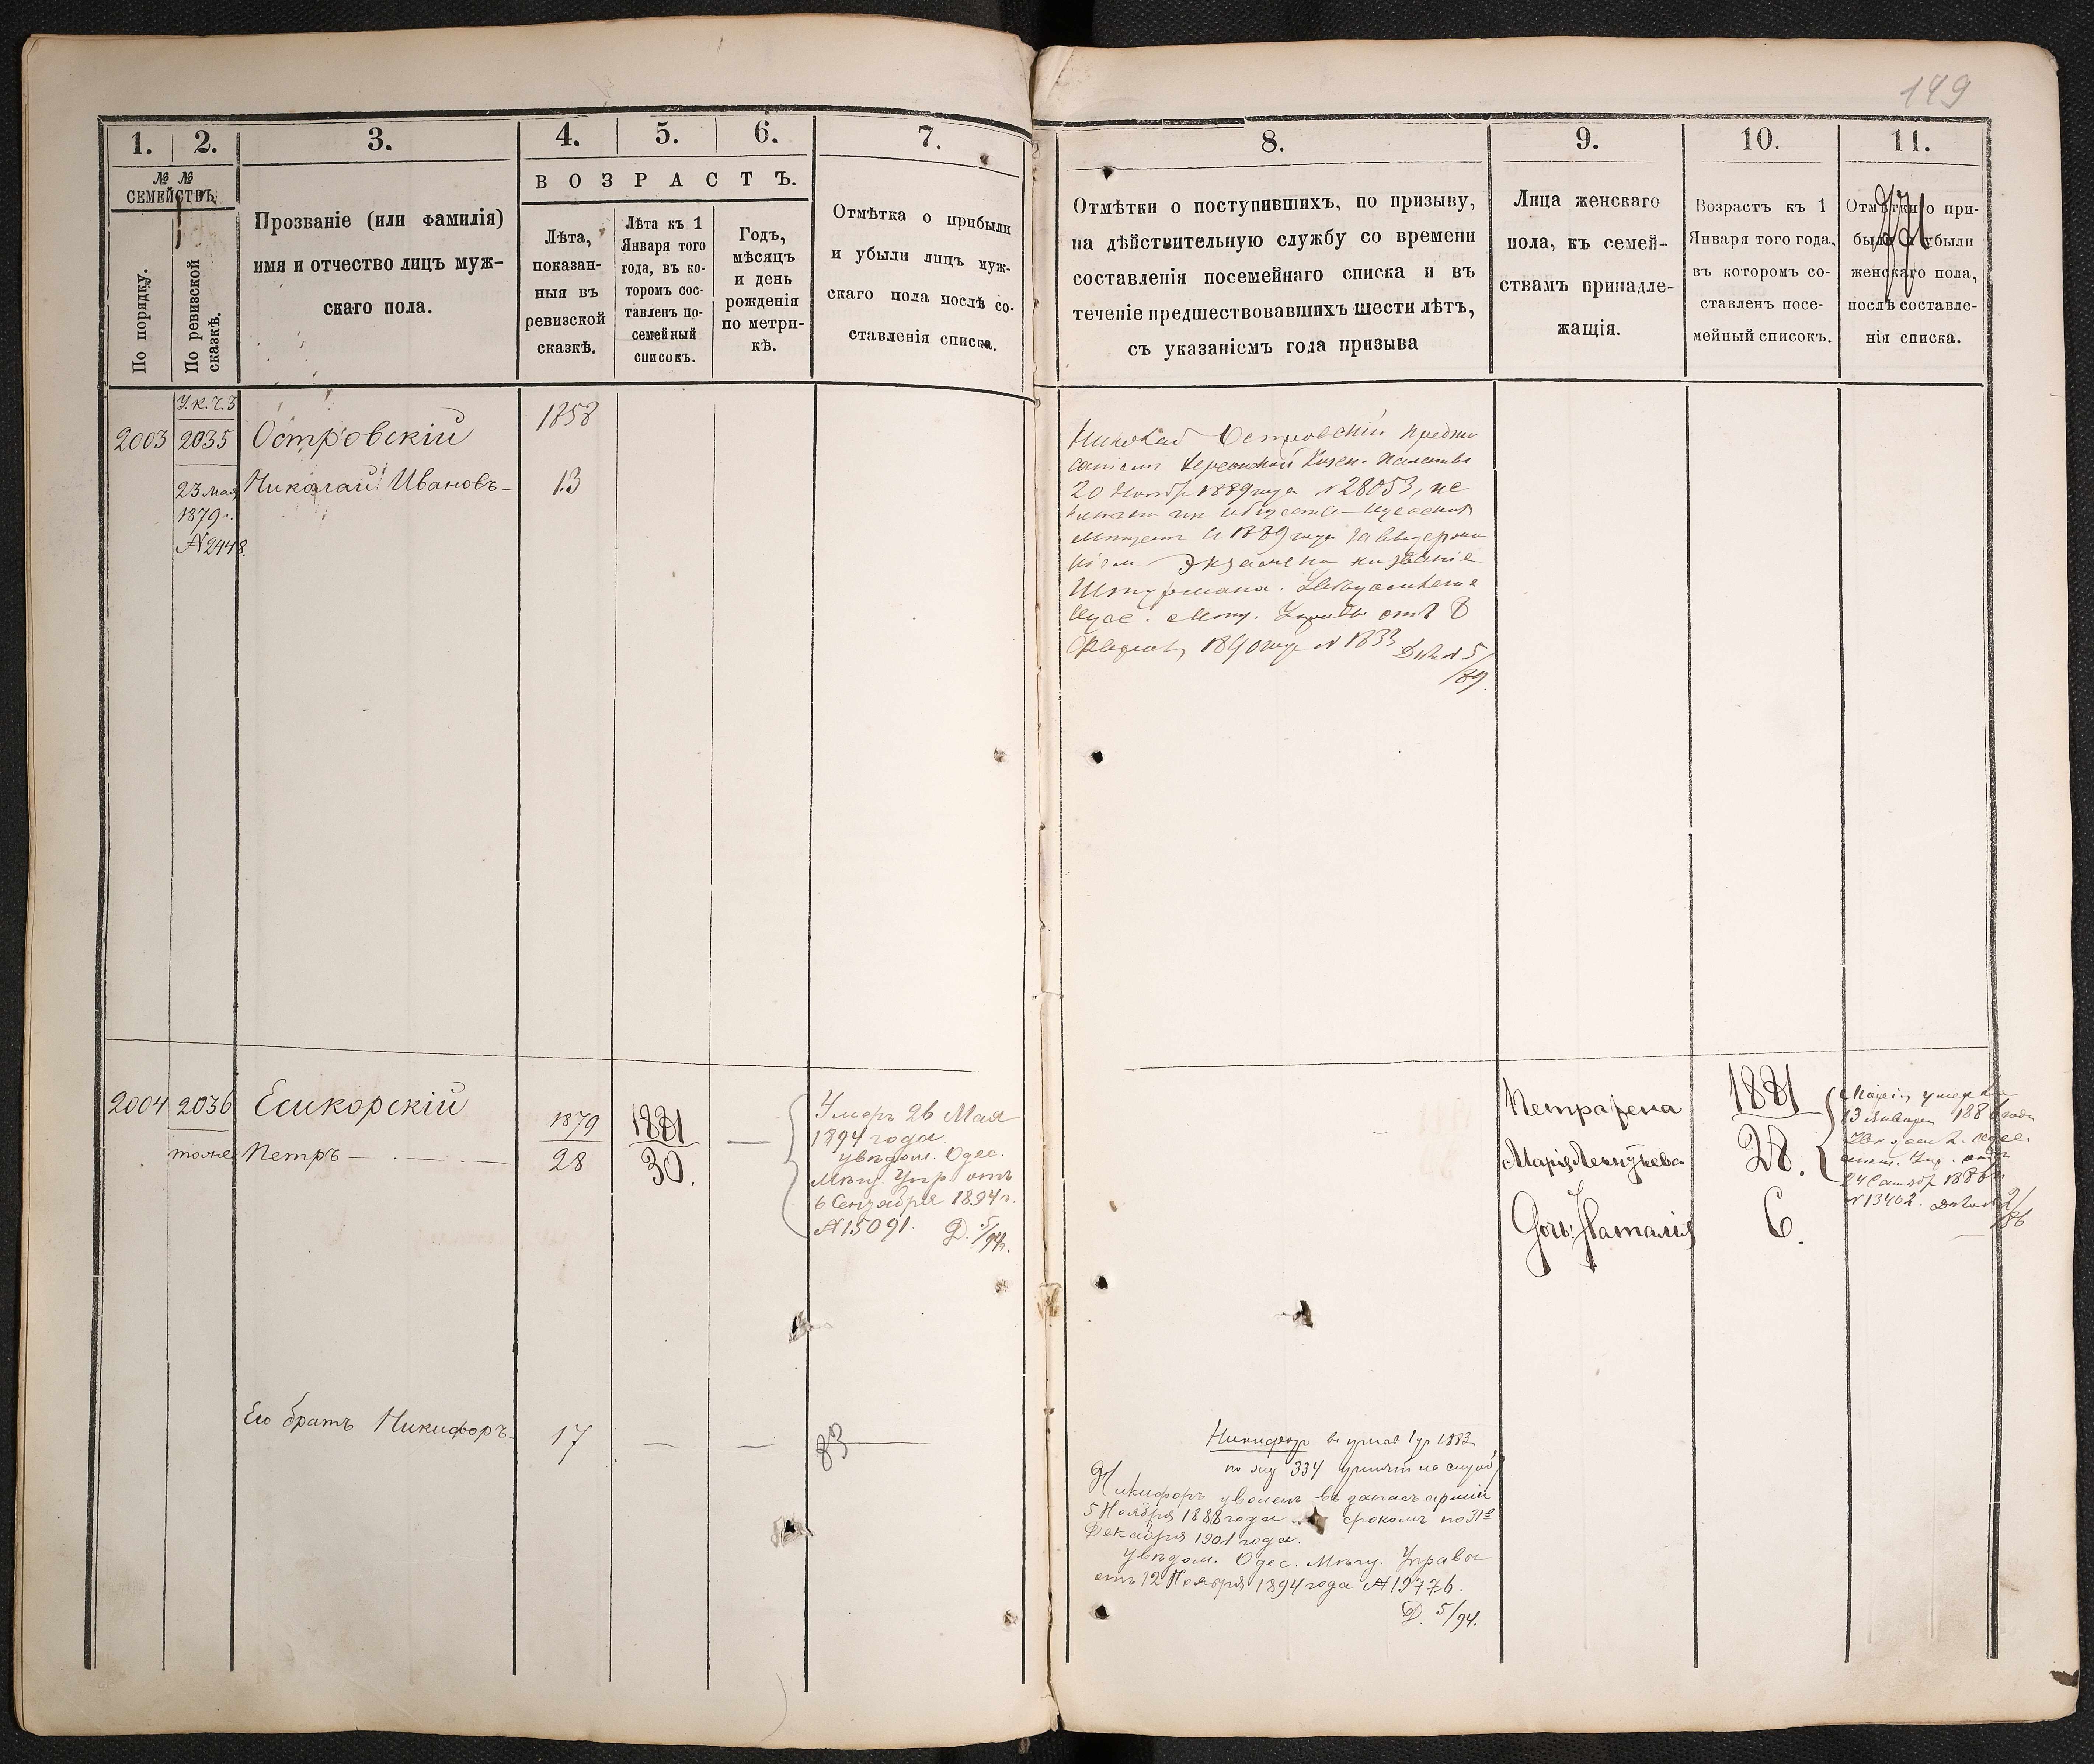 149
1.
2.
3.
4.
5.
6.
7.
8.
9.
10.
11.
№ №
СЕМЕЙСТВЪ.
По порядку.
По ревизской
сказкѣ.
Прозваніе (или фамилія)
имя и отчество лицъ муж-
скаго пола.
ВОЗРАСТЪ.
Лѣта,
показан-
ныя въ
ревизской
сказкѣ.
Лѣта къ 1
Января того
года, въ ко-
торомъ сос-
тавленъ по-
семейный
списокъ.
Годъ,
мѣсяцъ
и день
рожденія
по метри-
кѣ.
Отмѣтка о прибыли
и убыли лицъ муж-
скаго пола послѣ со-
ставленія списка.
Отмѣтки о поступившихъ, по призыву,
на дѣйствительную службу со времени
составленія посемейнаго списка и въ
теченіе предшествовавшихъ шести лѣтъ,
съ указаніемъ года призыва
Лица женскаго
пола, къ семей-
ствамъ принадле-
жащія.
Возрастъ къ 1
Января того года,
въ которомъ со-
ставленъ посе-
мейный списокъ.
Отмѣтки о при-
были и убыли
женскаго пола,
послѣ составле-
нія списка.
У.к.ч.3
2003 2035 Островскій 1858
23 мая Николай Ивановъ 13
1879 г.
№ 2448.
Николай Островскій предпи
саніемъ Херсонской Казен. Палаты
20 Ноября 1889 года № 28053, ис
мѣщанъ съ 1889 года за выдержа
ніем экзамена на званіе
Штурмана.
Одес. Мѣщ. Управы отъ 8
Февраля 1890 года № 1833 Дѣло № 5/89.
2004 2036 Есикорскій 1879 1881
тоже Петръ 28 30.
Умеръ 26 Мая
1894 года.
Увѣдом. Одес.
Мѣщ. Упр. отъ
6 Сентября 1894 г.
№ 15091. Д. 5/94.
Петра жена 1881
Марія 28.
Доч: Наталія 6.
Марія умерла
13 Января 1886 года
24 1886
№ 13402. Дѣло № 2/86
Его братъ Никифоръ 17
83
Никифоръ въ 1883
по 334 принятъ на службу
Никифоръ уволенъ въ запасъ арміи
5 Ноября 1888 года срокомъ по 31е
Декабря 1901 года.
Увѣдом. Одес. Мѣщ. Управы
отъ 12 Ноября 1894 года № 19776.
Д. 5/94.